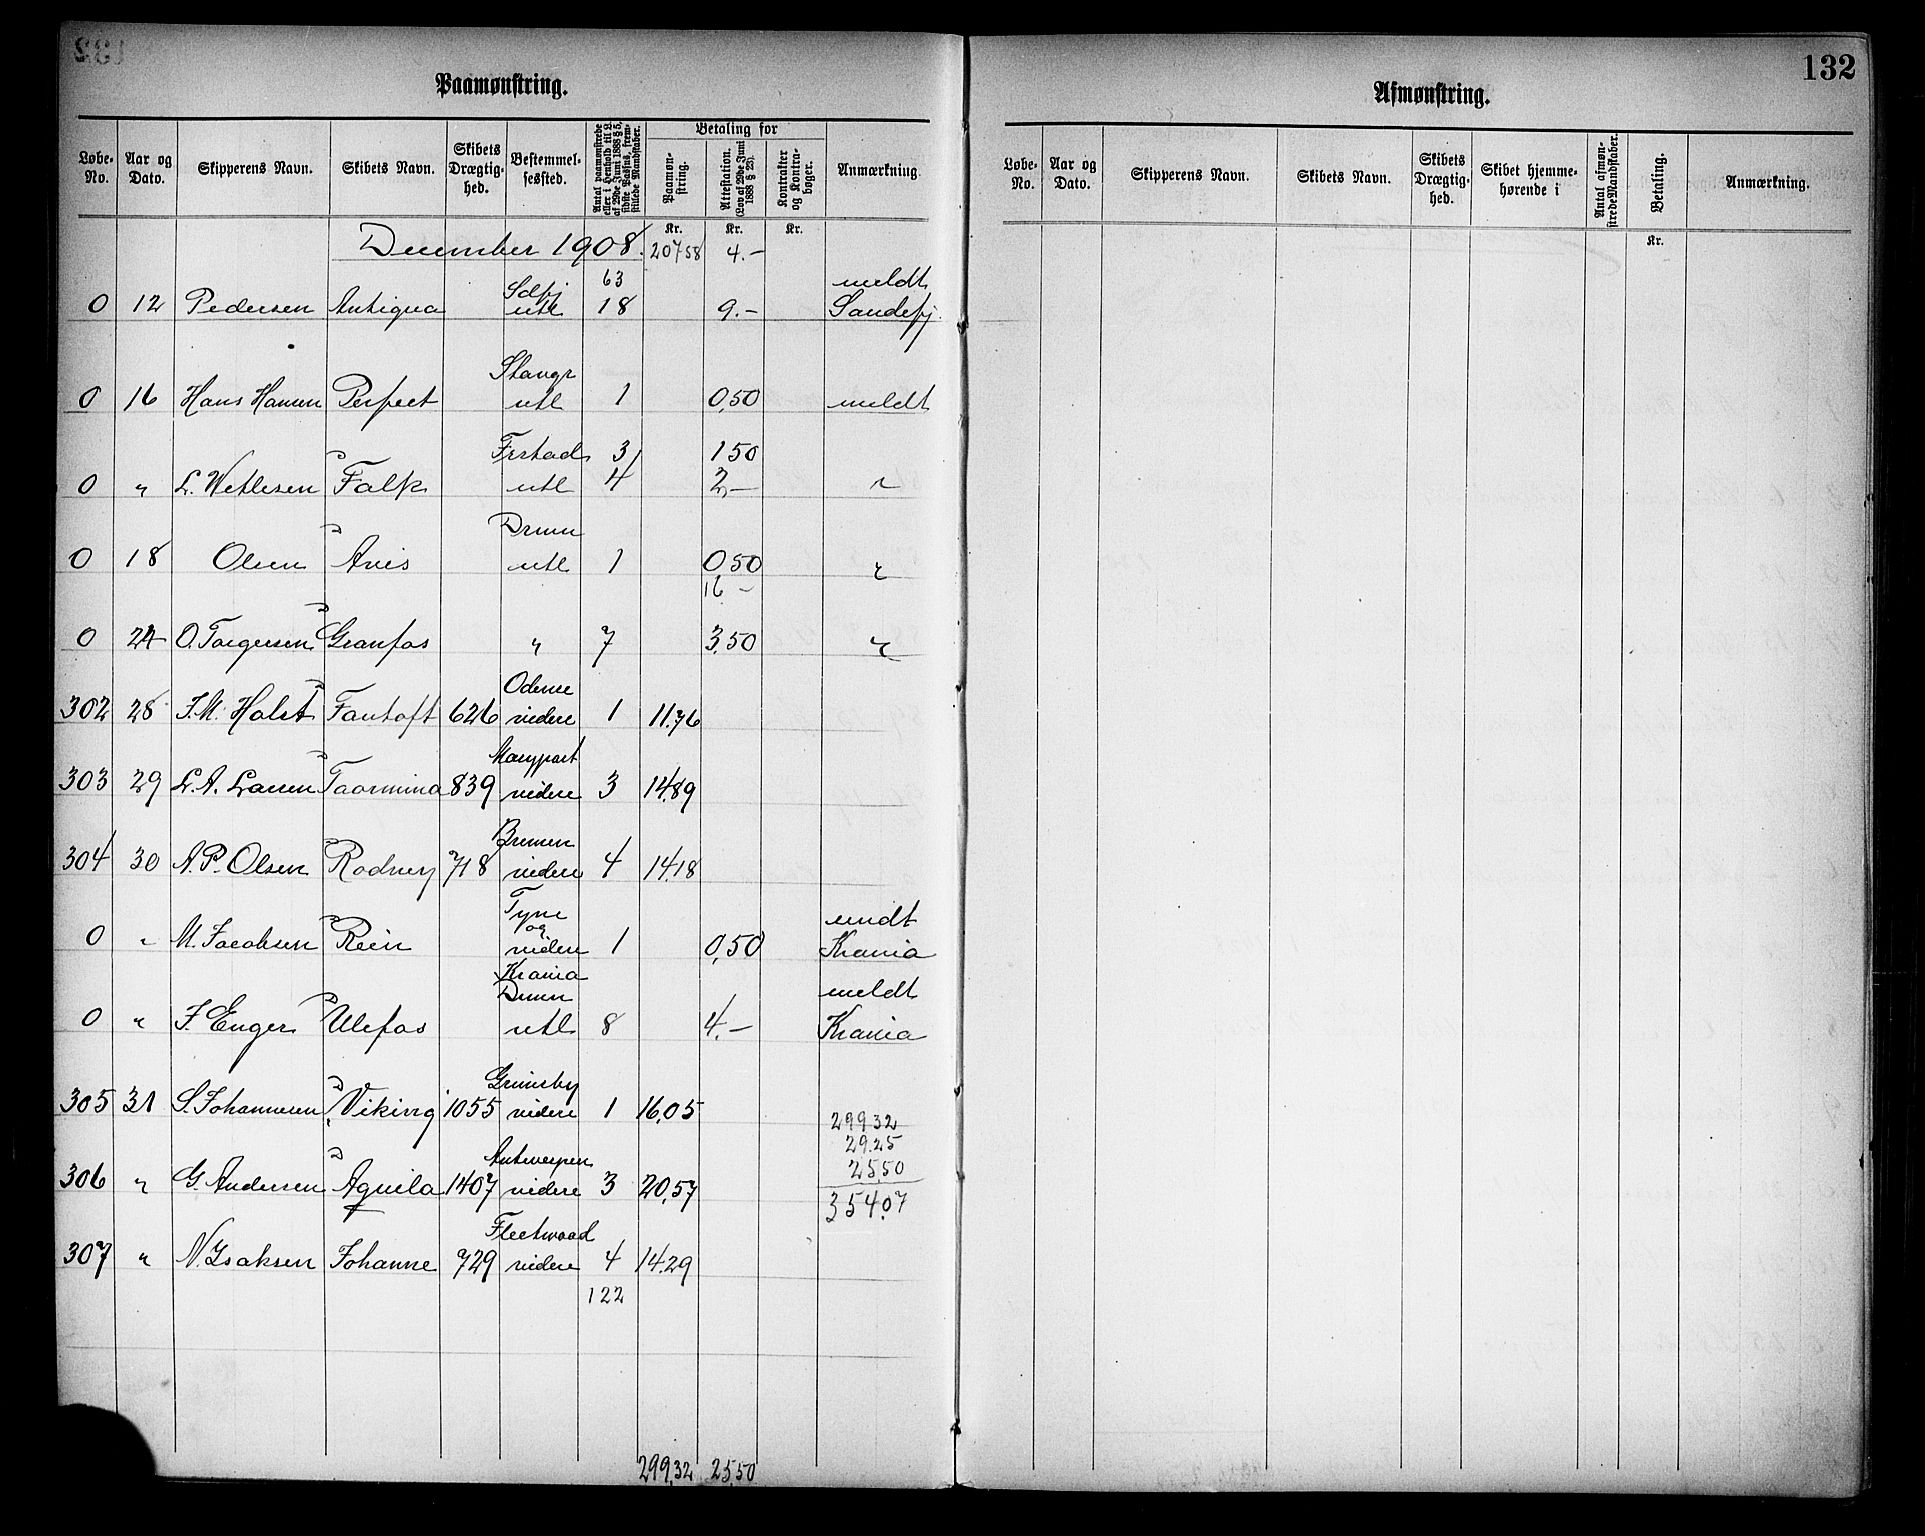 132
Paamønstring.
Løbe-No. Aar og Dato. Skipperens Navn. Skibets Navn. Skibets Drægtighed. Bestemmelsessted. Antal paamønstrede eller i Henhold til L. af 29de Juni 1888 § 5, sidste Passus, fremstillede Mandskaber. Betaling for Paamønstring. Attestation. (Lov af 29de Juni 1888 § 23). Kontrakter og Kontrabøger. Anmærkning.
Kr. Kr. Kr.
December 1908. 207 58 4.-
63
Sdfj meldt
0 12 Pedersen Antiqua utl 18 9.- Sandefj.
Stangr
0 16 Hans Hansen Perfect utl 1 0,50 meldt
Frstad 3 1 50
0 " L. Wetlesen Falk utl 4 2,- "
Drmn
0 18 Olsen Avis utl 1 0 50 "
16 -
0 24 O. Torgersen Granfos " 7 3,50 "
Odense
302 28 J. M. Holst Fantoft 626 videre 1 11.76
Maryport
303 29 L. A. Larsen Taormina 839 videre 3 14.89
Bremen
304 30 A. P. Olsen Rodney 718 videre 4 14.18
Tyne
og meldt
0 " M. Jacobsen Rein videre 1 0,50 Krania
Krania
Drmn meldt
0 " J. Enger Ulefos utl 8 4.- Krania
Grimsby
305 31 S. Johannesen Viking 1055 videre 1 16,05
299 32
29.25
Antwerpen 25,50
306 " G. Andersen Aquila 1407 videre 3 20,57
354.07
Fleetwood
307 " N. Isaksen Johanne 729 videre 4 14.29
122
299,32 25,50
Afmønstring.
Løbe-No. Aar og Dato. Skipperens Navn. Skibets Navn. Skibets Drægtighed. Skibet hjemmehørende i Antal afmønstrede Mandskaber. Betaling. Anmærkning.
Kr.